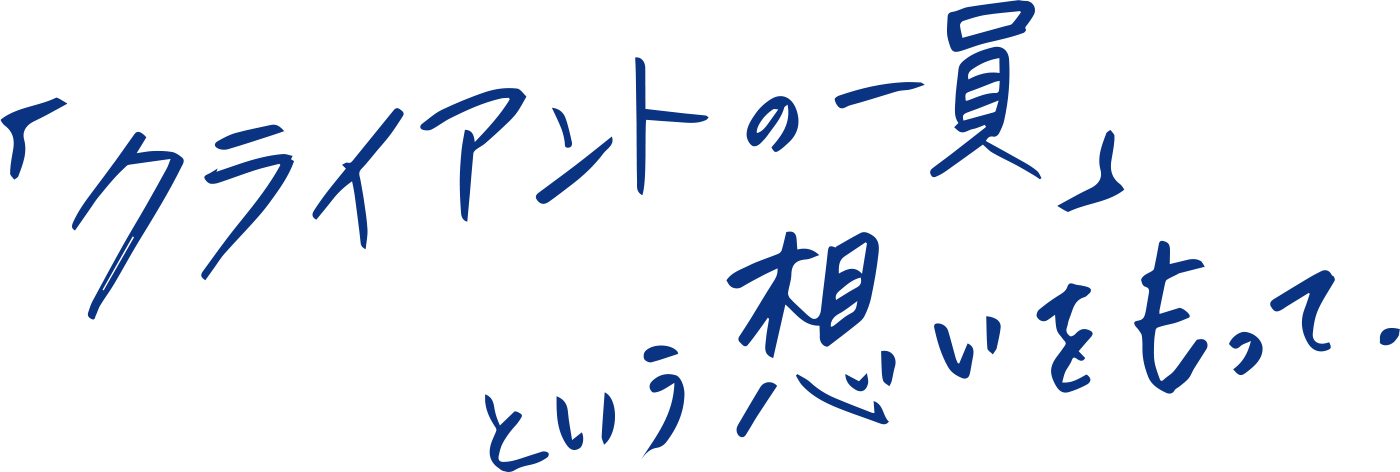 「クライアントの一員」
という想いをもって.